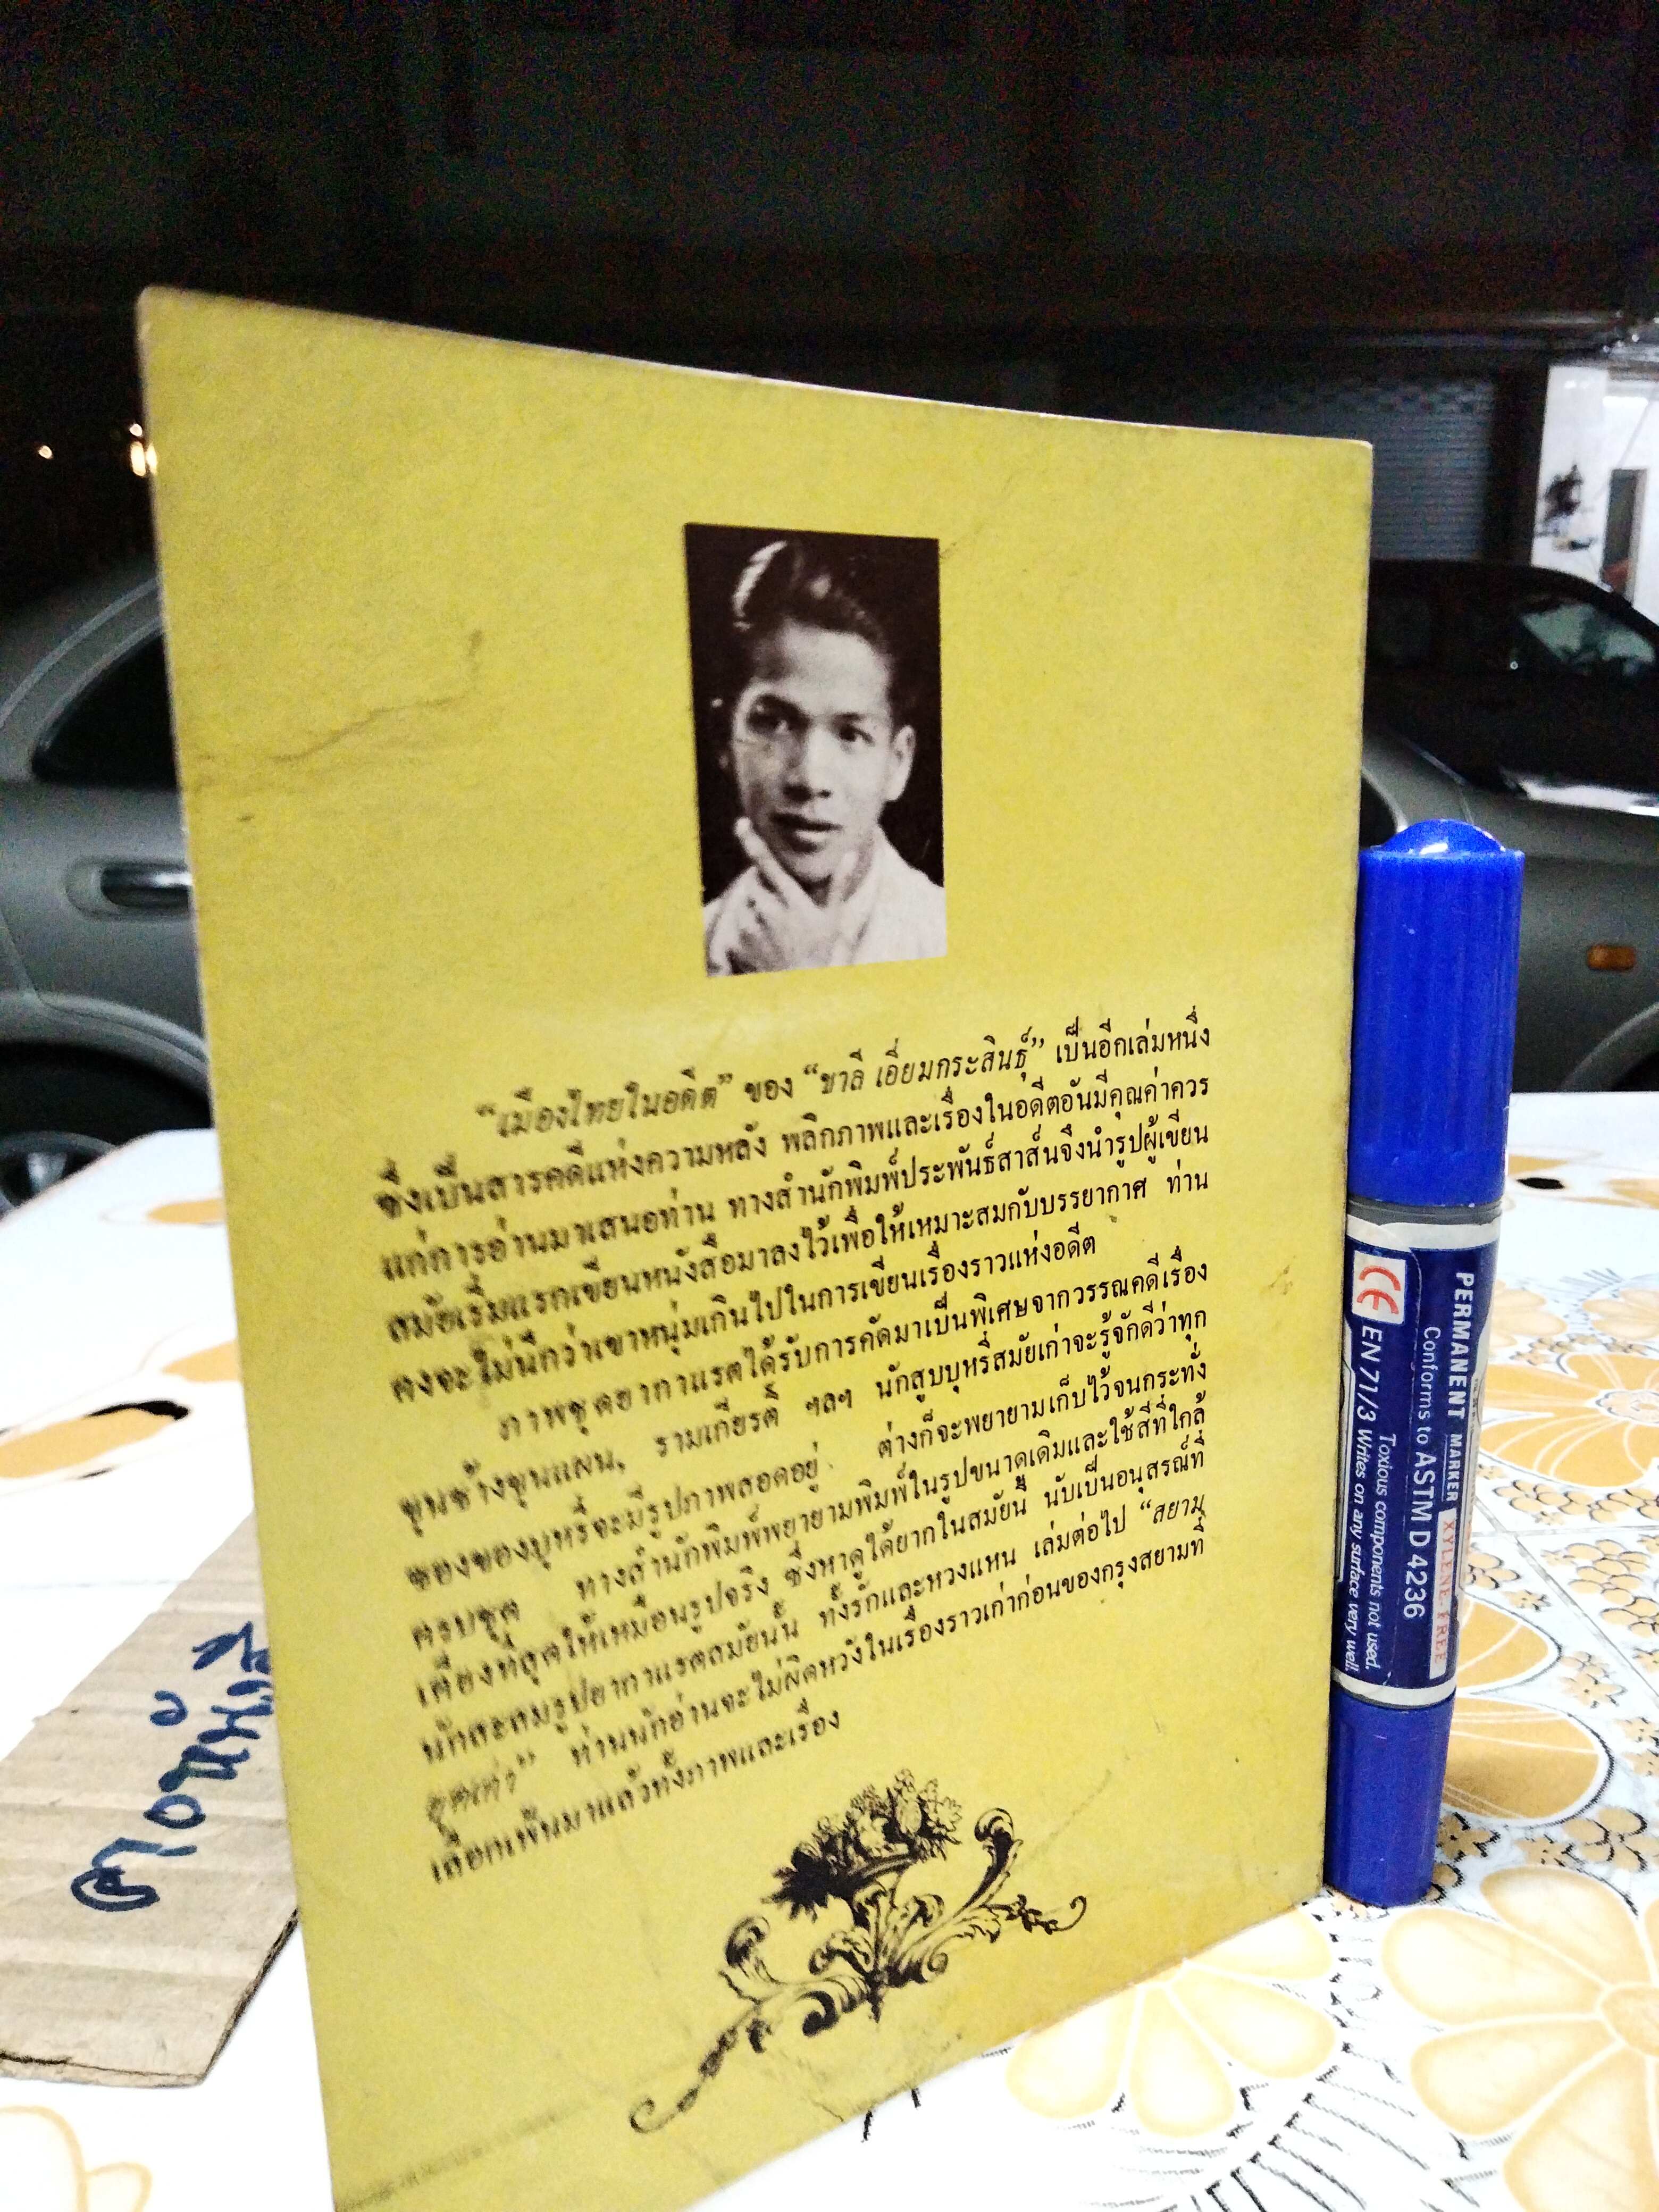 “เมืองไทยในอดีต” ของ “ชาลี เอี่ยมกระสินธุ์” เป็นอีกเล่มหนึ่ง
ซึ่งเป็นสารคดีแห่งความหลัง พลิกภาพและเรื่องในอดีตอันมีคุณค่าควร
แก่การอ่านมาเสนอท่าน ทางสำนักพิมพ์ประพันธ์สาส์นจึงนำรูปผู้เขียน
สมัยเริ่มแรกเขียนหนังสือมาลงไว้เพื่อให้เหมาะสมกับบรรยากาศ ท่าน
คงจะไม่นึกว่าเขาหนุ่มเกินไปในการเขียนเรื่องราวแห่งอดีต
ภาพชุดยากาแรตได้รับการคัดมาเป็นพิเศษจากวรรณคดีเรื่อง
ขุนช้างขุนแผน, รามเกียรติ์ ฯลฯ นักสูบบุหรี่สมัยเก่าจะรู้จักดีว่าทุก
ซองของบุหรี่จะมีรูปภาพสอดอยู่ ต่างก็จะพยายามเก็บไว้จนกระทั่ง
ครบชุด ทางสำนักพิมพ์พยายามพิมพ์ในรูปขนาดเดิมและใช้สีที่ใกล้
เคียงที่สุดให้เหมือนรูปจริง ซึ่งหาดูได้ยากในสมัยนี้ นับเป็นอนุสรณ์ที่
นักสะสมรูปยากาแรตสมัยนั้น ทั้งรักและหวงแหน เล่มต่อไป “สยาม
ยุคเก่า” ท่านนักอ่านจะไม่ผิดหวังในเรื่องราวเก่าก่อนของกรุงสยามที่
เลือกเฟ้นมาแล้วทั้งภาพและเรื่อง
PERMANENT MARKER
XYLENE FREE
Conforms to ASTM D 4236
Toxious components not used.
CE EN 71/3 Writes on any surface very well.